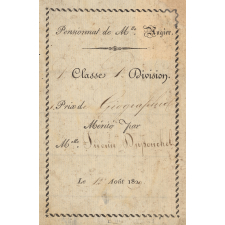 Pensionnat de Mlle
Classes 1e Division.
Prix de Géographie
Mérité par
Mlle Duponchel
Le 12 Août 18